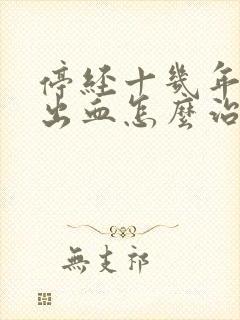 停经十幾年
出血怎麼治
無支祁